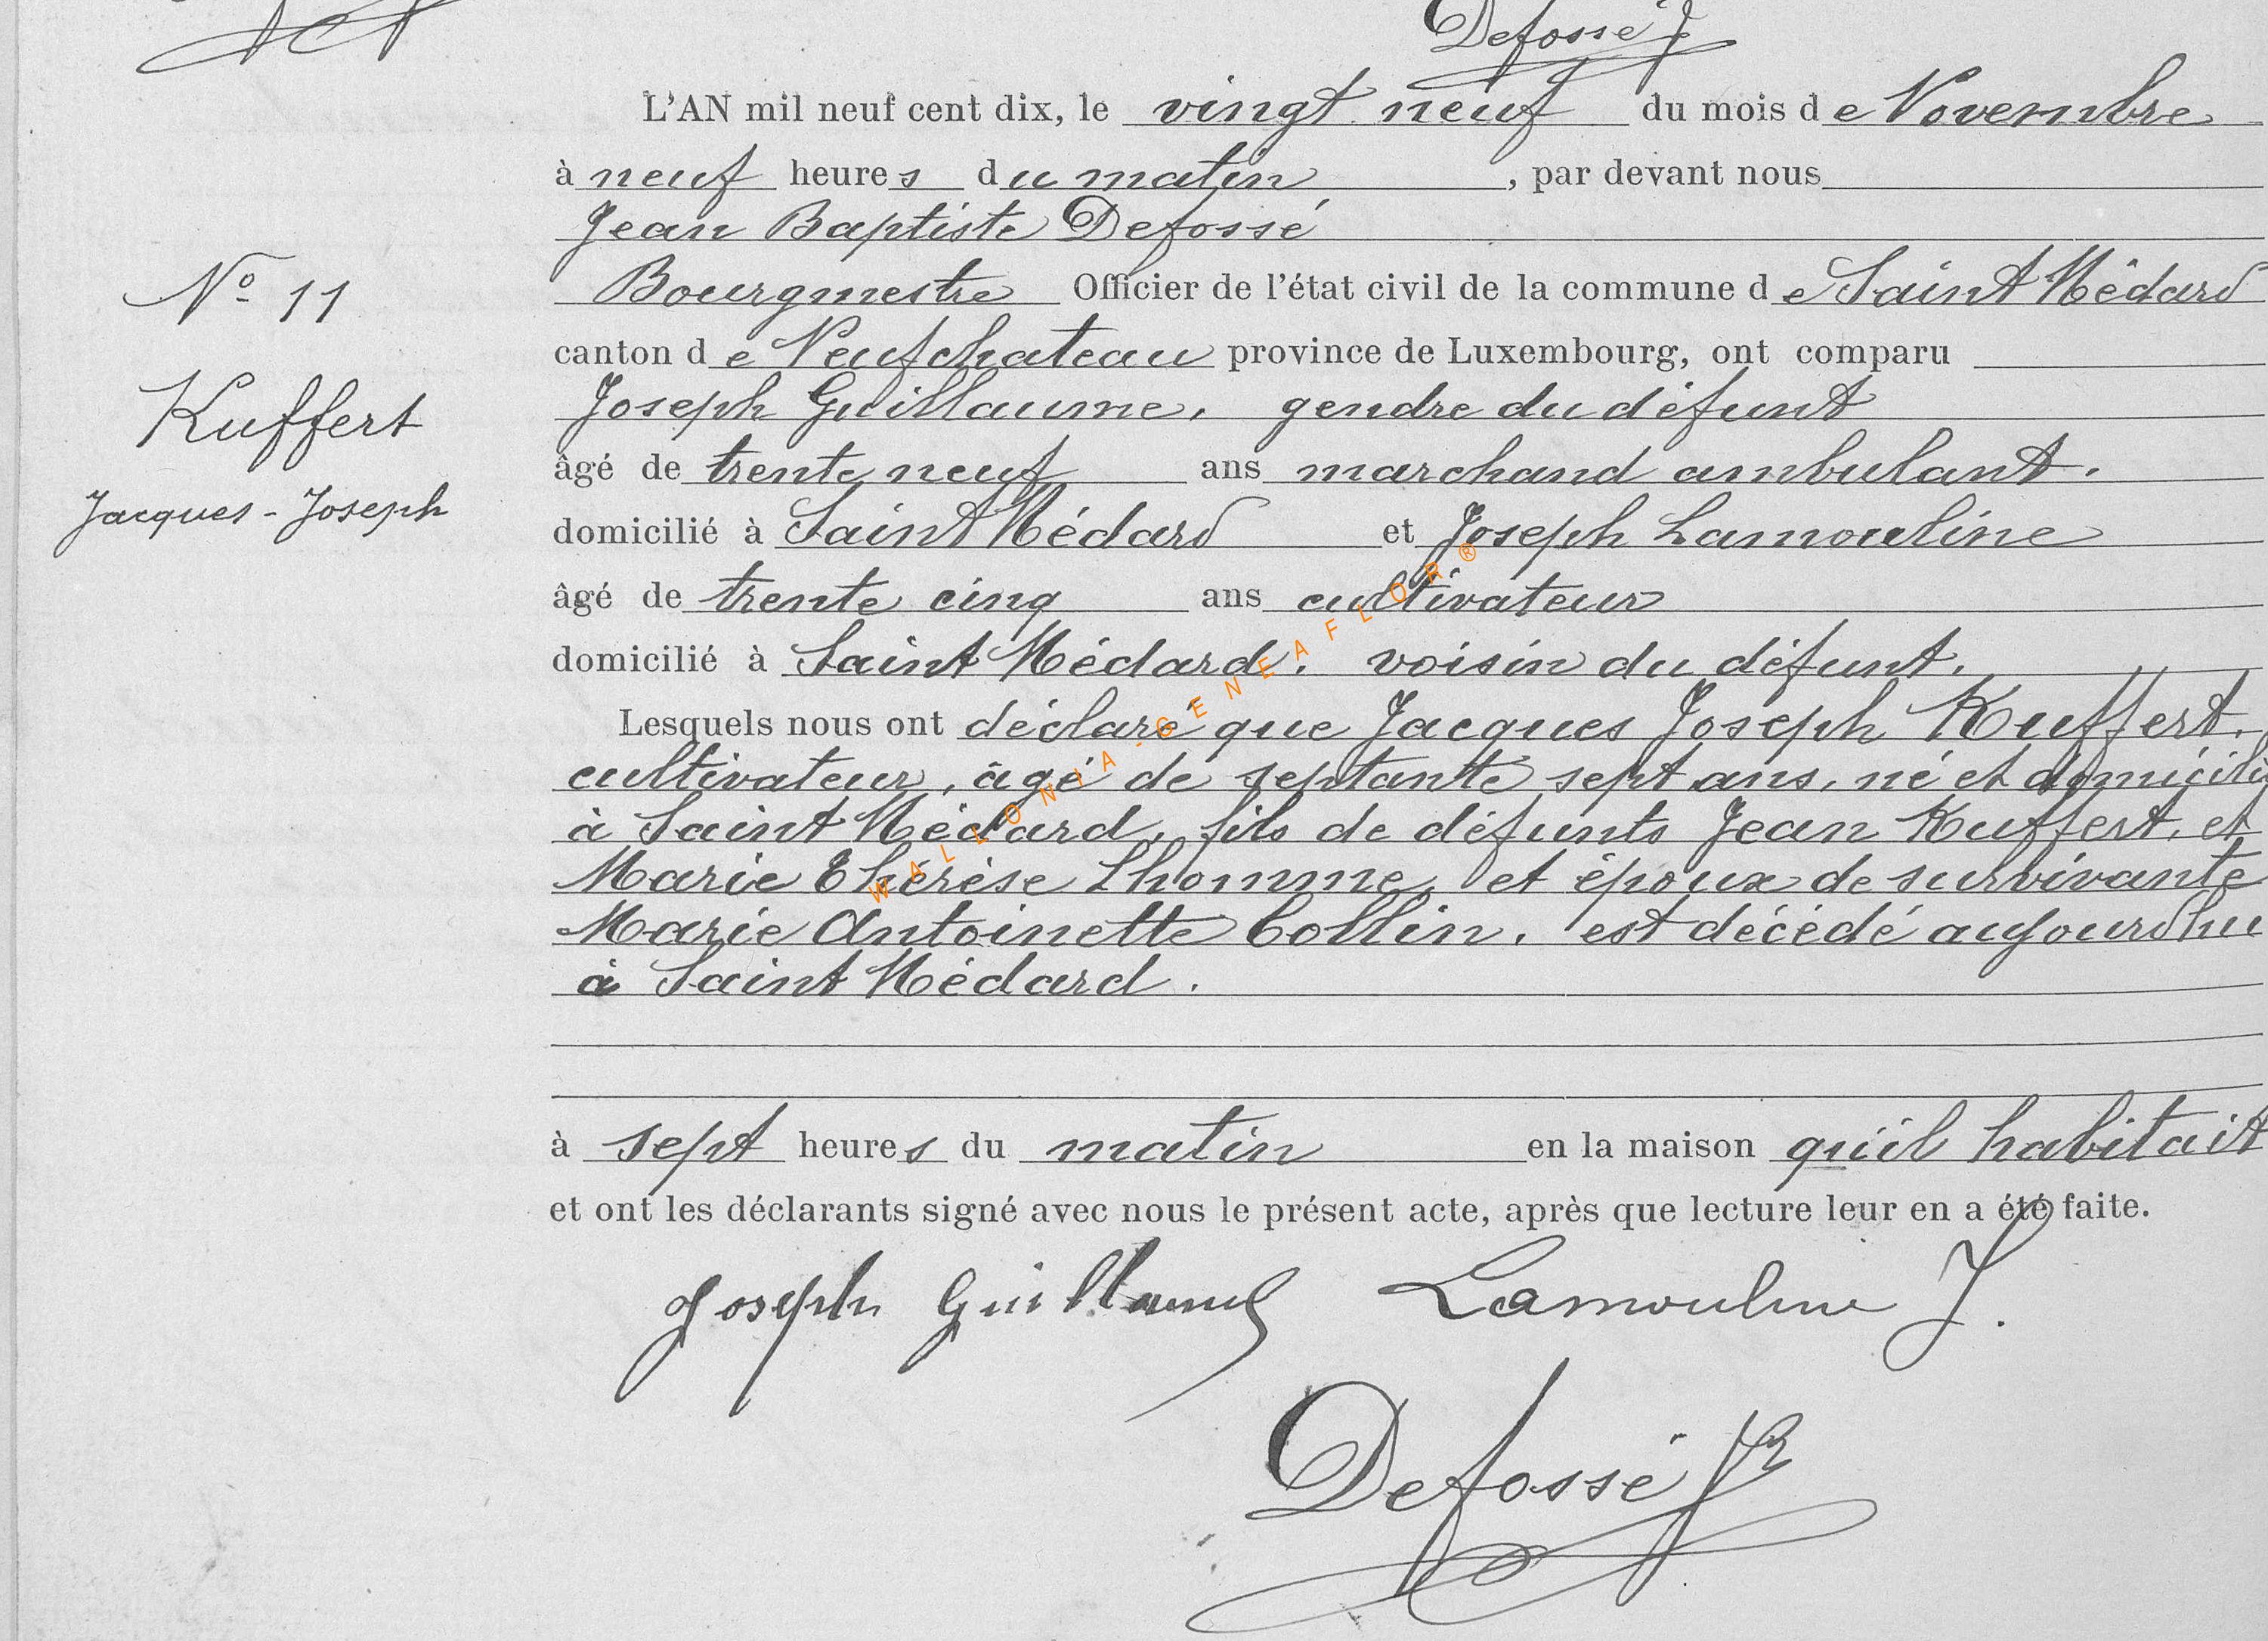 Defossé J
L'AN mil neuf cent dix, le vingt neuf du mois de Novembre
à neuf heures du matin , par devant nous
Jean Baptiste Defossé
Nº 11
Bourgmestre Officier de l'état civil de la commune de Saint Médard
canton de Neufchateau province de Luxembourg, ont comparu
Kuffert
Joseph Guillaume, gendre du défunt
âgé de trente neuf ans marchand ambulant.
Jacques-Joseph
domicilié à Saint Médard et Joseph Lamouline
âgé de trente cinq ans cultivateur
domicilié à Saint Médard, voisin du défunt.
Lesquels nous ont déclaré que Jacques Joseph Kuffert,
cultivateur, âgé de septante sept ans, né et domicilié
à Saint Médard, fils de défunts Jean Kuffert, et
Marie Thérèse Lhomme, et époux de survivante
Marie Antoinette Collin, est décédé aujourdhu
à Saint Médard.
à sept heures du matin en la maison qu'il habitait
et ont les déclarants signé avec nous le présent acte, après que lecture leur en a été faite.
Joseph Guillaume Lamouline J.
Defossé JB
WALLONIA-GENEAFLOR®